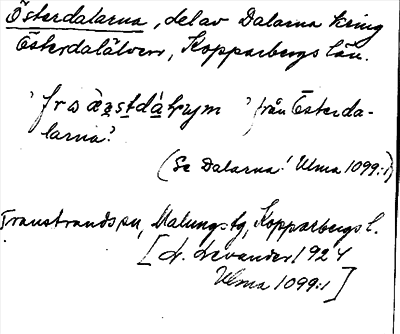 Österdalarna, del av Dalarna kring
Österdalälven, Kopparbergs län.
'frå från Österda-
larna'.
(Se Dalarna! Ulma 1099:1)
Transtrands sn, Malungs tg, Kopparbergs l.
[L. Levander 1924
Ulma 1099:1]